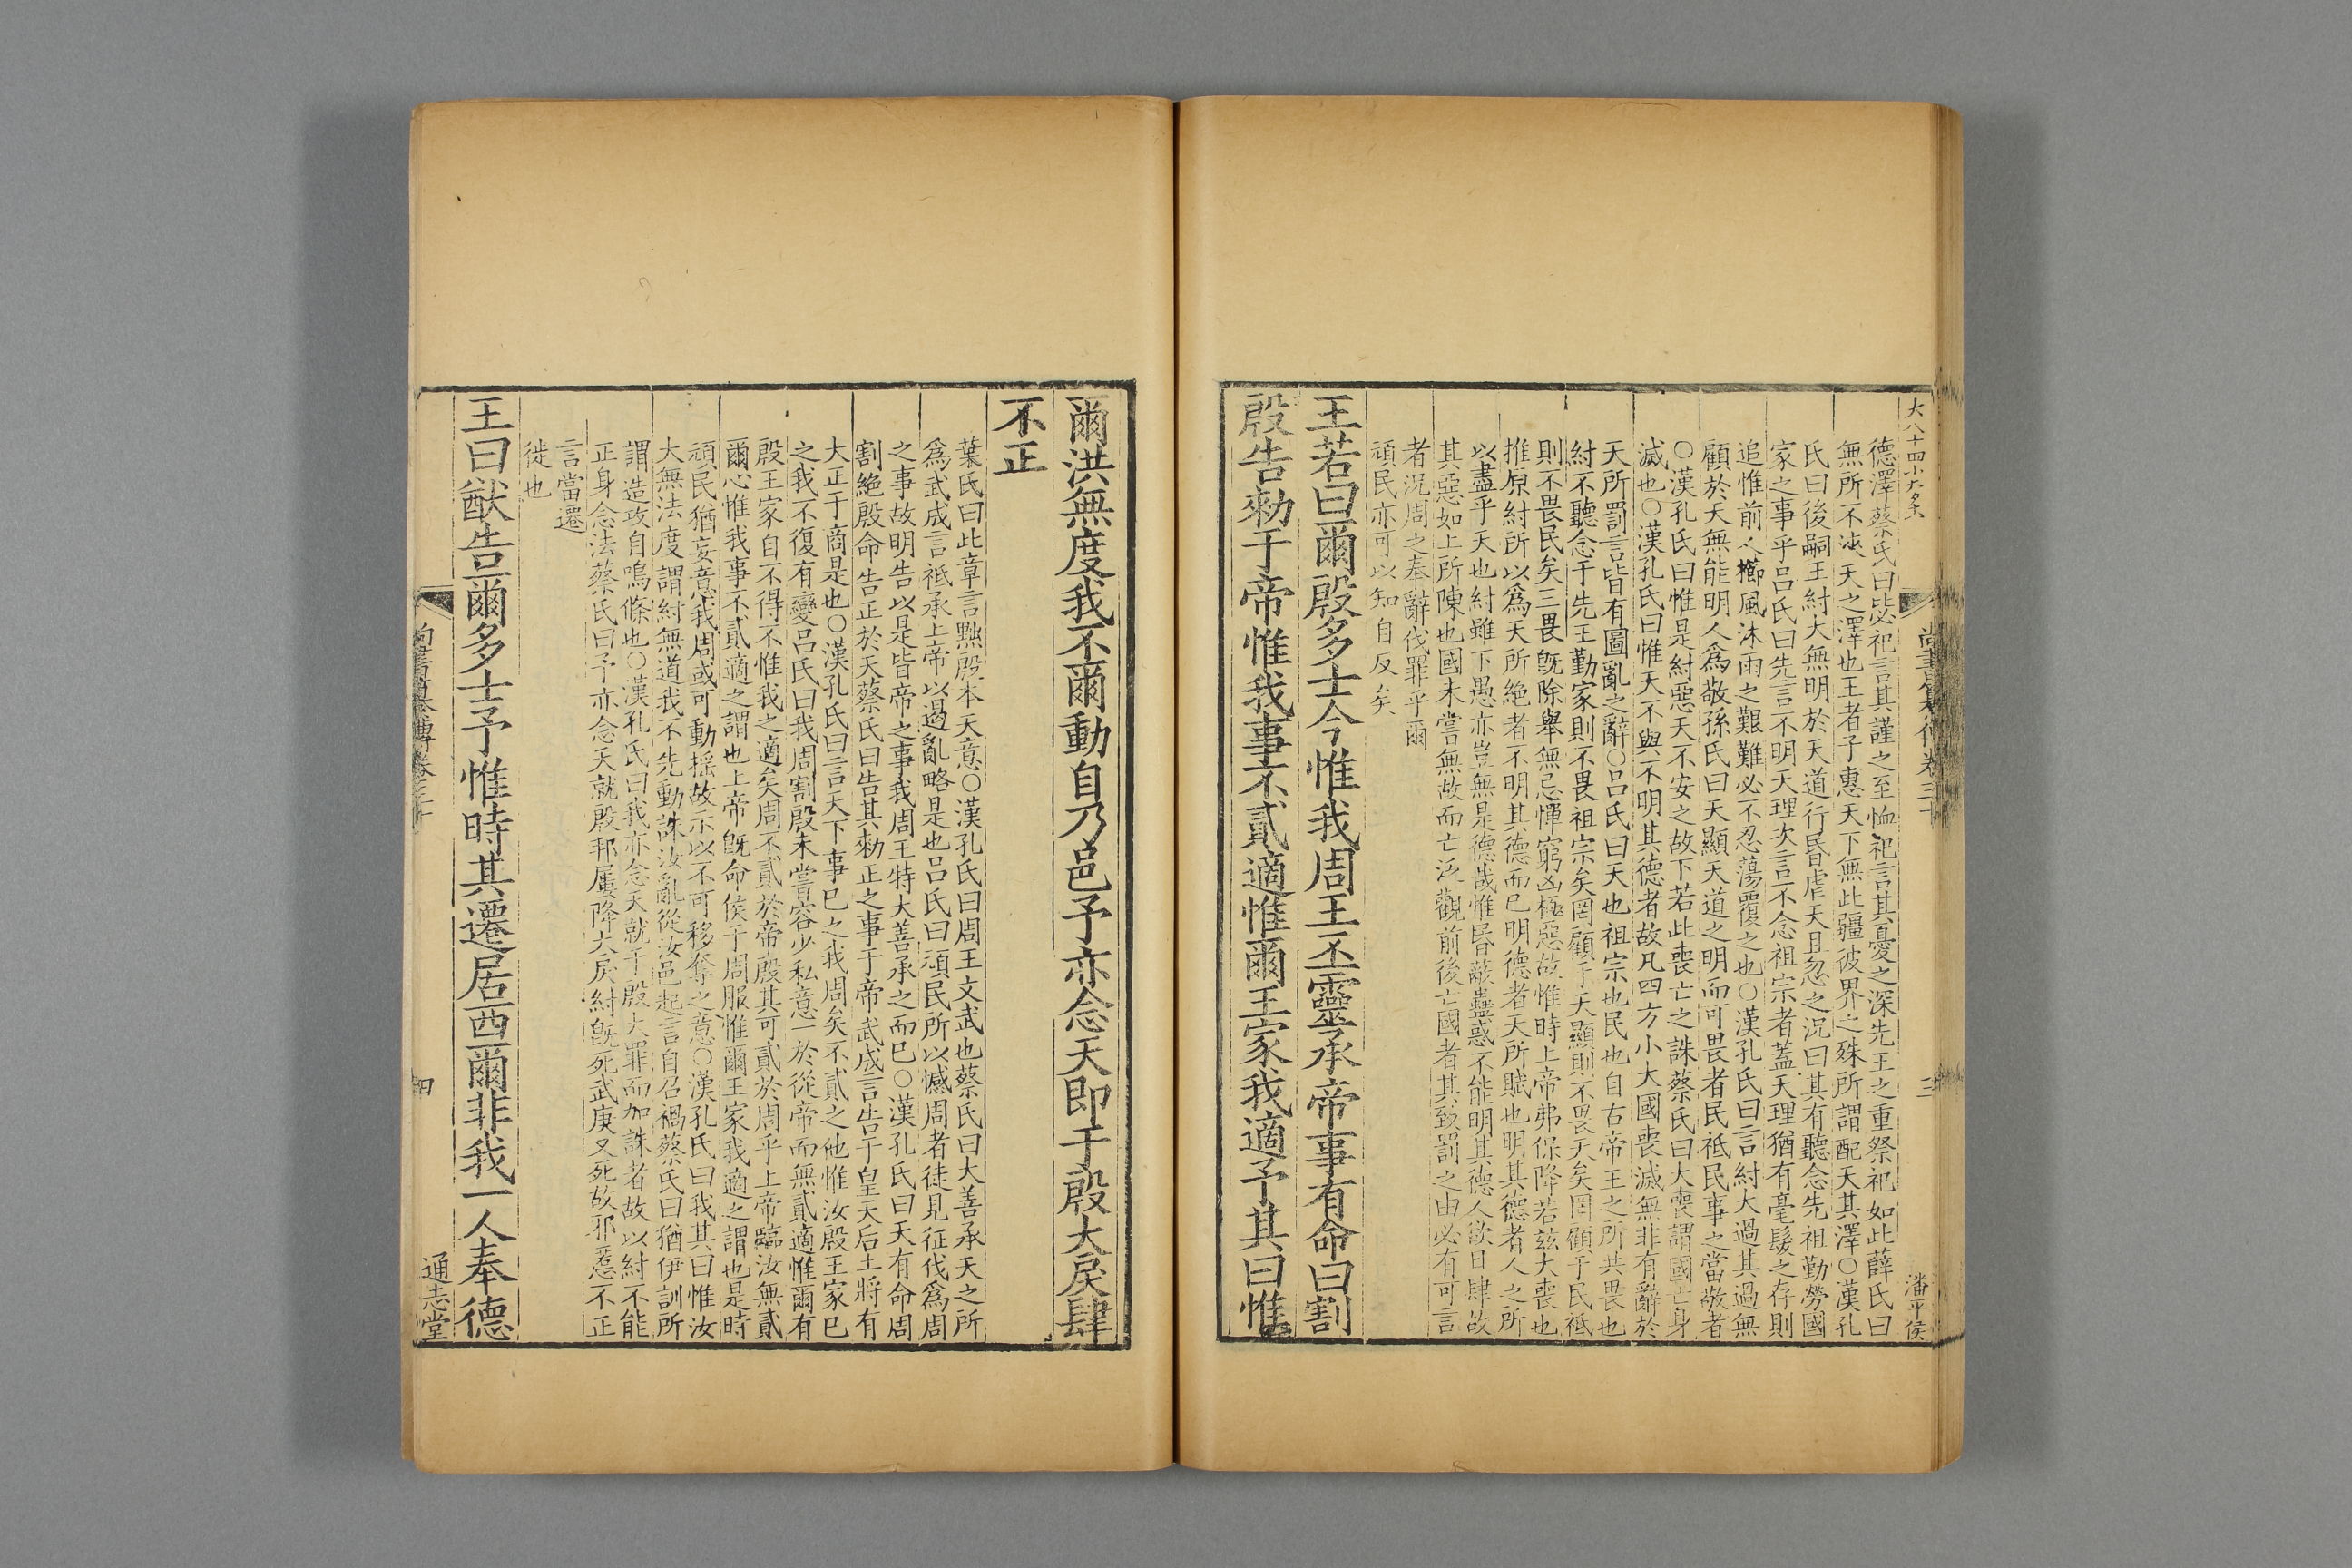 大八十四小
德澤蔡氏曰毖祀言其謹之至恤祀言其憂之深先王之重祭祀如此薛氏曰
無所不浹天之澤也王者子惠天下無此疆彼界之殊所謂配天其澤○漢孔
氏曰後嗣王紂大無明於天道行昏虐天且忽之況曰其有聽念先祖勤勞國
家之事乎呂氏曰先言不明天理次言不念祖宗者蓋天理猶有毫髮之存則
追惟前人櫛風沐雨之艱難必不忍蕩覆之也○漢孔氏曰言紂大過其過無
顧於天無能明人爲敬孫氏曰天顯天道之明而可畏者民祗民事之當敬者
○漢孔氏曰惟是紂惡天不安之故下若此喪亡之誅蔡氏曰大喪謂國亡身
滅也○漢孔氏曰惟天不與不明其德者故凡四方小大國喪滅無非有辭於
天所罰言皆有圖亂之辭○呂氏曰天也祖宗也民也自古帝王之所共畏也
紂不聽念于先王勤家則不畏祖宗矣罔顧于天顯則不畏天矣罔顧于民祗
則不畏民矣三畏旣除舉無忌憚窮凶極惡故惟時上帝弗保降若茲大喪也
推原紂所以爲天所絶者不明其德而已明德者天所賦也明其德者人之所
以盡乎天也紂雖下愚亦豈無是德哉惟昏蔽蠱惑不能明其德人欲日肆故
其惡如上所陳也國未嘗無故而亡泛觀前後亡國者其致罰之由必有可言
者況周之奉辭伐罪乎爾
頑民亦可以知自反矣
王若曰爾殷多士今惟我周王丕靈承帝事有命曰割
殷告勑于帝惟我事不貳適惟爾王家我適予其曰惟
尚書 卷三十
三
潘平侯
爾洪無度我不爾動自乃邑予亦念天即于殷大戾肆
不正
葉氏曰此章言黜殷本天意○漢孔氏曰周王文武也蔡氏曰大善承天之所
爲武成言祗承上帝以遏亂略是也呂氏曰頑民所以憾周者徒見征伐爲周
之事故明告以是皆帝之事我周王特大善承之而已○漢孔氏曰天有命周
割絶殷命告正於天蔡氏曰告其勑正之事于帝武成言告于皇天后土將有
大正于商是也○漢孔氏曰言天下事已之我周矣不貳之他惟汝殷王家已
之我不復有變呂氏曰我周割殷未嘗容少私意一於從帝而無貳適惟爾有
殷王家自不得不惟我之適矣周不貳於帝殷其可貳於周乎上帝臨汝無貳
爾心惟我事不貳適之謂也上帝旣命侯于周服惟爾王家我適之謂也是時
頑民猶妄意我周或可動搖故示以不可移奪之意○漢孔氏曰我其曰惟汝
大無法度謂紂無道我不先動誅汝亂從汝邑起言自召禍蔡氏曰猶伊訓所
謂造攻自鳴條也○漢孔氏曰我亦念天就于殷大罪而加誅者故以紂不能
正身念法蔡氏曰予亦念天就殷邦屢降大戾紂旣死武庚又死故邪慝不正
言當遷
徙也
王曰猷告爾多士予惟時其遷居西爾非我一人奉德
四
通志堂